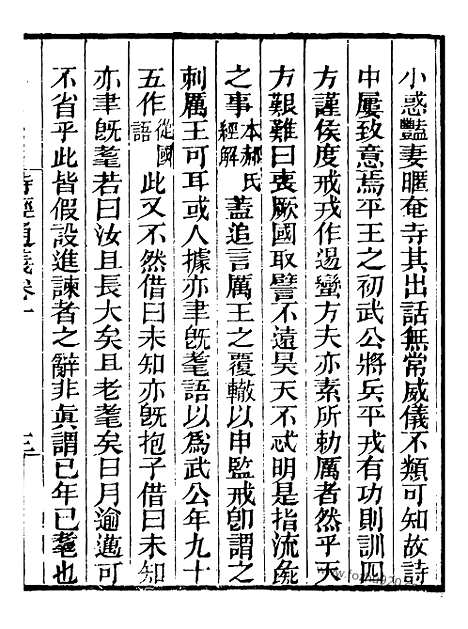 小惑豔妻暱奄寺其出話無常威儀不類可知故詩
中屢致意焉平王之初武公將兵平戎有功則訓四
方謹侯度戒戎作遏蠻方夫亦素所勅厲者然乎天
方艱難曰喪厥國取譬不遠昊天不忒明是指流彘
之事本郝氏經解蓋追言厲王之覆轍以申監戒卽謂之
刺厲王可耳或人據亦聿旣耄語以爲武公年九十
五作從國語此又不然借曰未知亦旣抱子借曰未知
亦聿旣耄若曰汝且長大矣且老耄矣日月逾邁可
不省乎此皆假設進諫者之辭非眞謂已年已耄也
詩經通義卷十
三